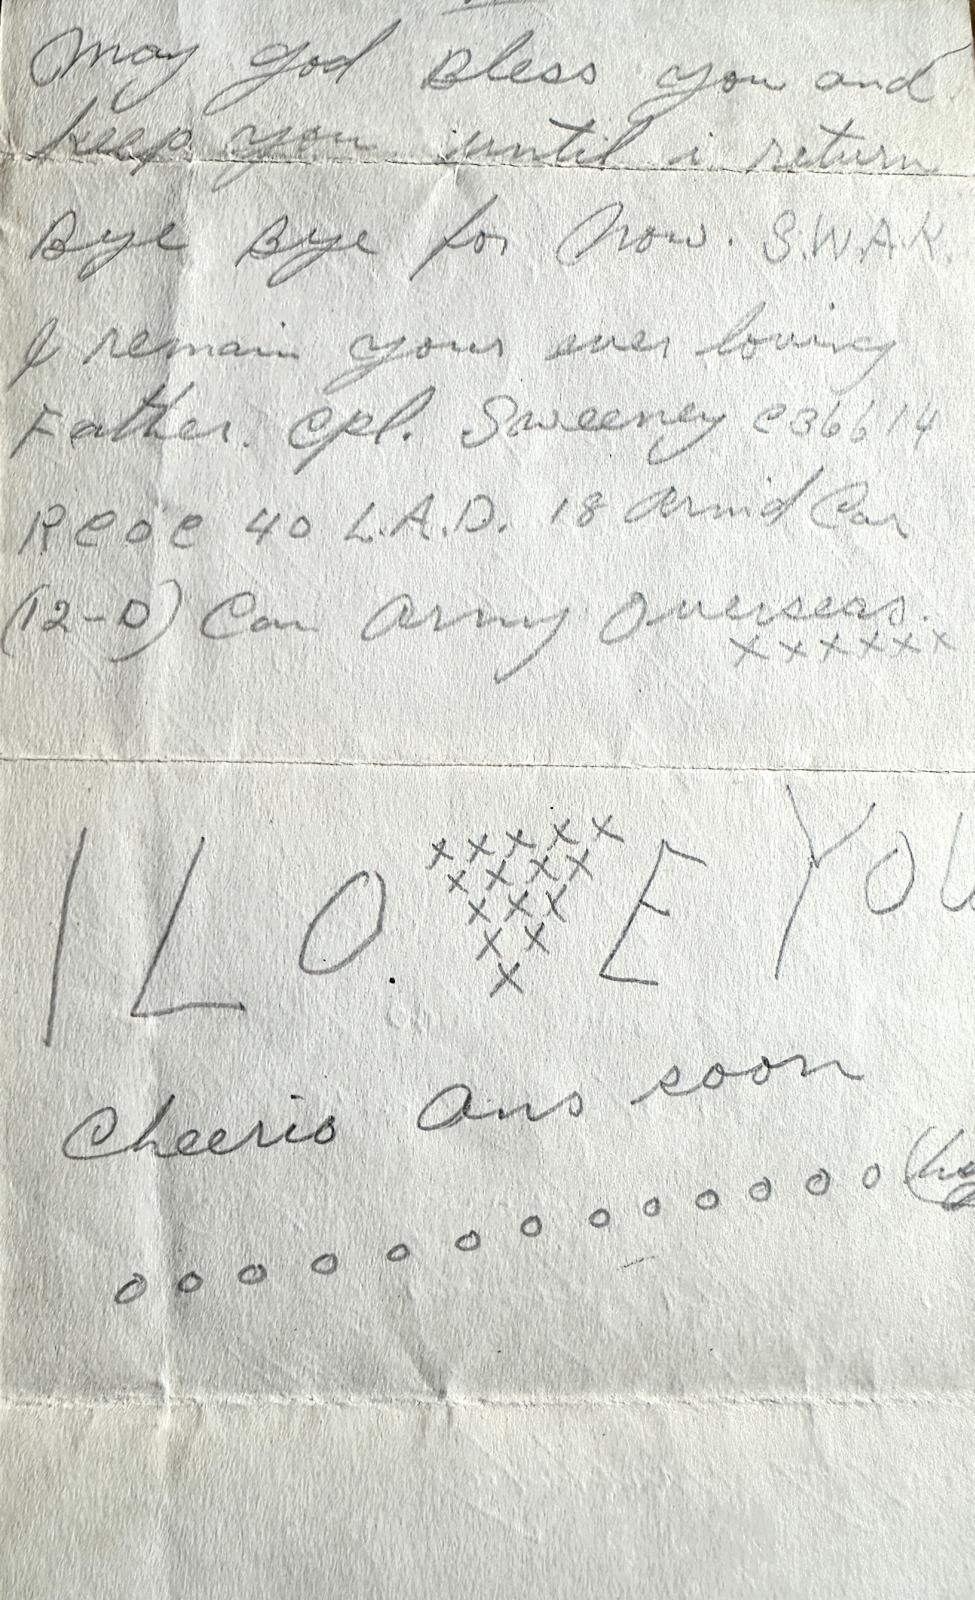 May god Bless you and
keep you until i return
Bye Bye for Now. S.W.A.K.
I remain your ever loving
Father. Cpl. Sweeney C36614
RCOC 40 L.A.D. 18 Armd Car
(12-D) Can Army Overseas.
xxxxxx
I LO E YOU
xxxxx
xxxx
xxx
xx
x
Cheerio Ans soon
o o o o o o o o o o o o o